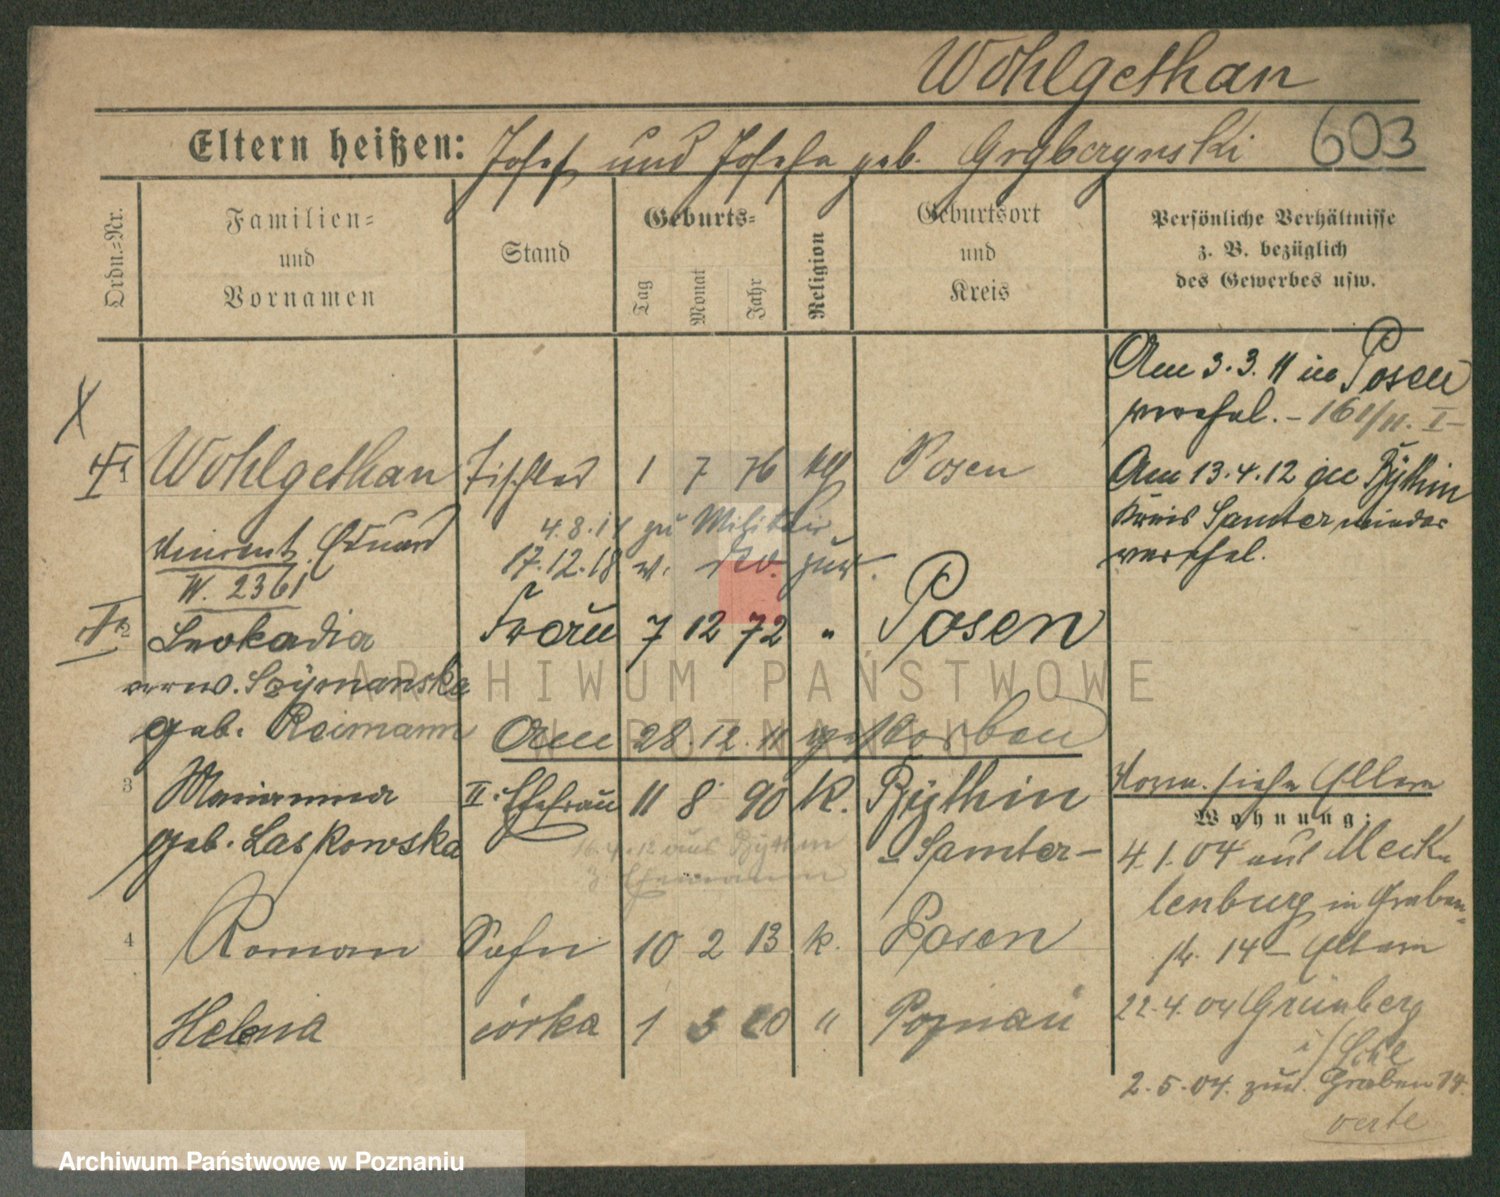 Wohlgethan
Eltern heißen: Josef und Josefa geb. Grybczynski 603
Ordn.-Nr.
Familien- und Vornamen
Stand
Geburts-
Tag
Monat
Jahr
Religion
Geburtsort und Kreis
Persönliche Verhältnisse
z. B. bezüglich
des Gewerbes usw.
Am 3.3.11 in Posen
verehel. – 161/11. I –
Wohlgethan Tischler 1 7 76 kth Posen
Am 13.4.12 zu Bythin
Kreis Samter wieder
verehel.
Vincent Eduard
4.8.14 zu Militair
17.12.18 v. do. zur.
W. 2361
2 Leokadia Frau 7 12 72 " Posen
verw. Szymanska
geb. Reimann
Am 28.12.11 gestorben
3 Marianna II. Ehefrau 11 8 90 K. Bythin
geb. Laskowska
– Samter –
16.4.12 aus Bythin
z. Ehemann
4 Roman Sohn 10 2 13 k. Posen
Helena córka 1 3 20 " Poznań
Vorw. siehe Eltern
Wohnung:
4.1.04 aus Meck-
lenburg in Graben-
str. 14 – Eltern
22.4.04 Grünberg
i/Schl
2.5.04. zur. Graben 14.
verte
ARCHIWUM PAŃSTWOWE
W POZNANIU
Archiwum Państwowe w Poznaniu